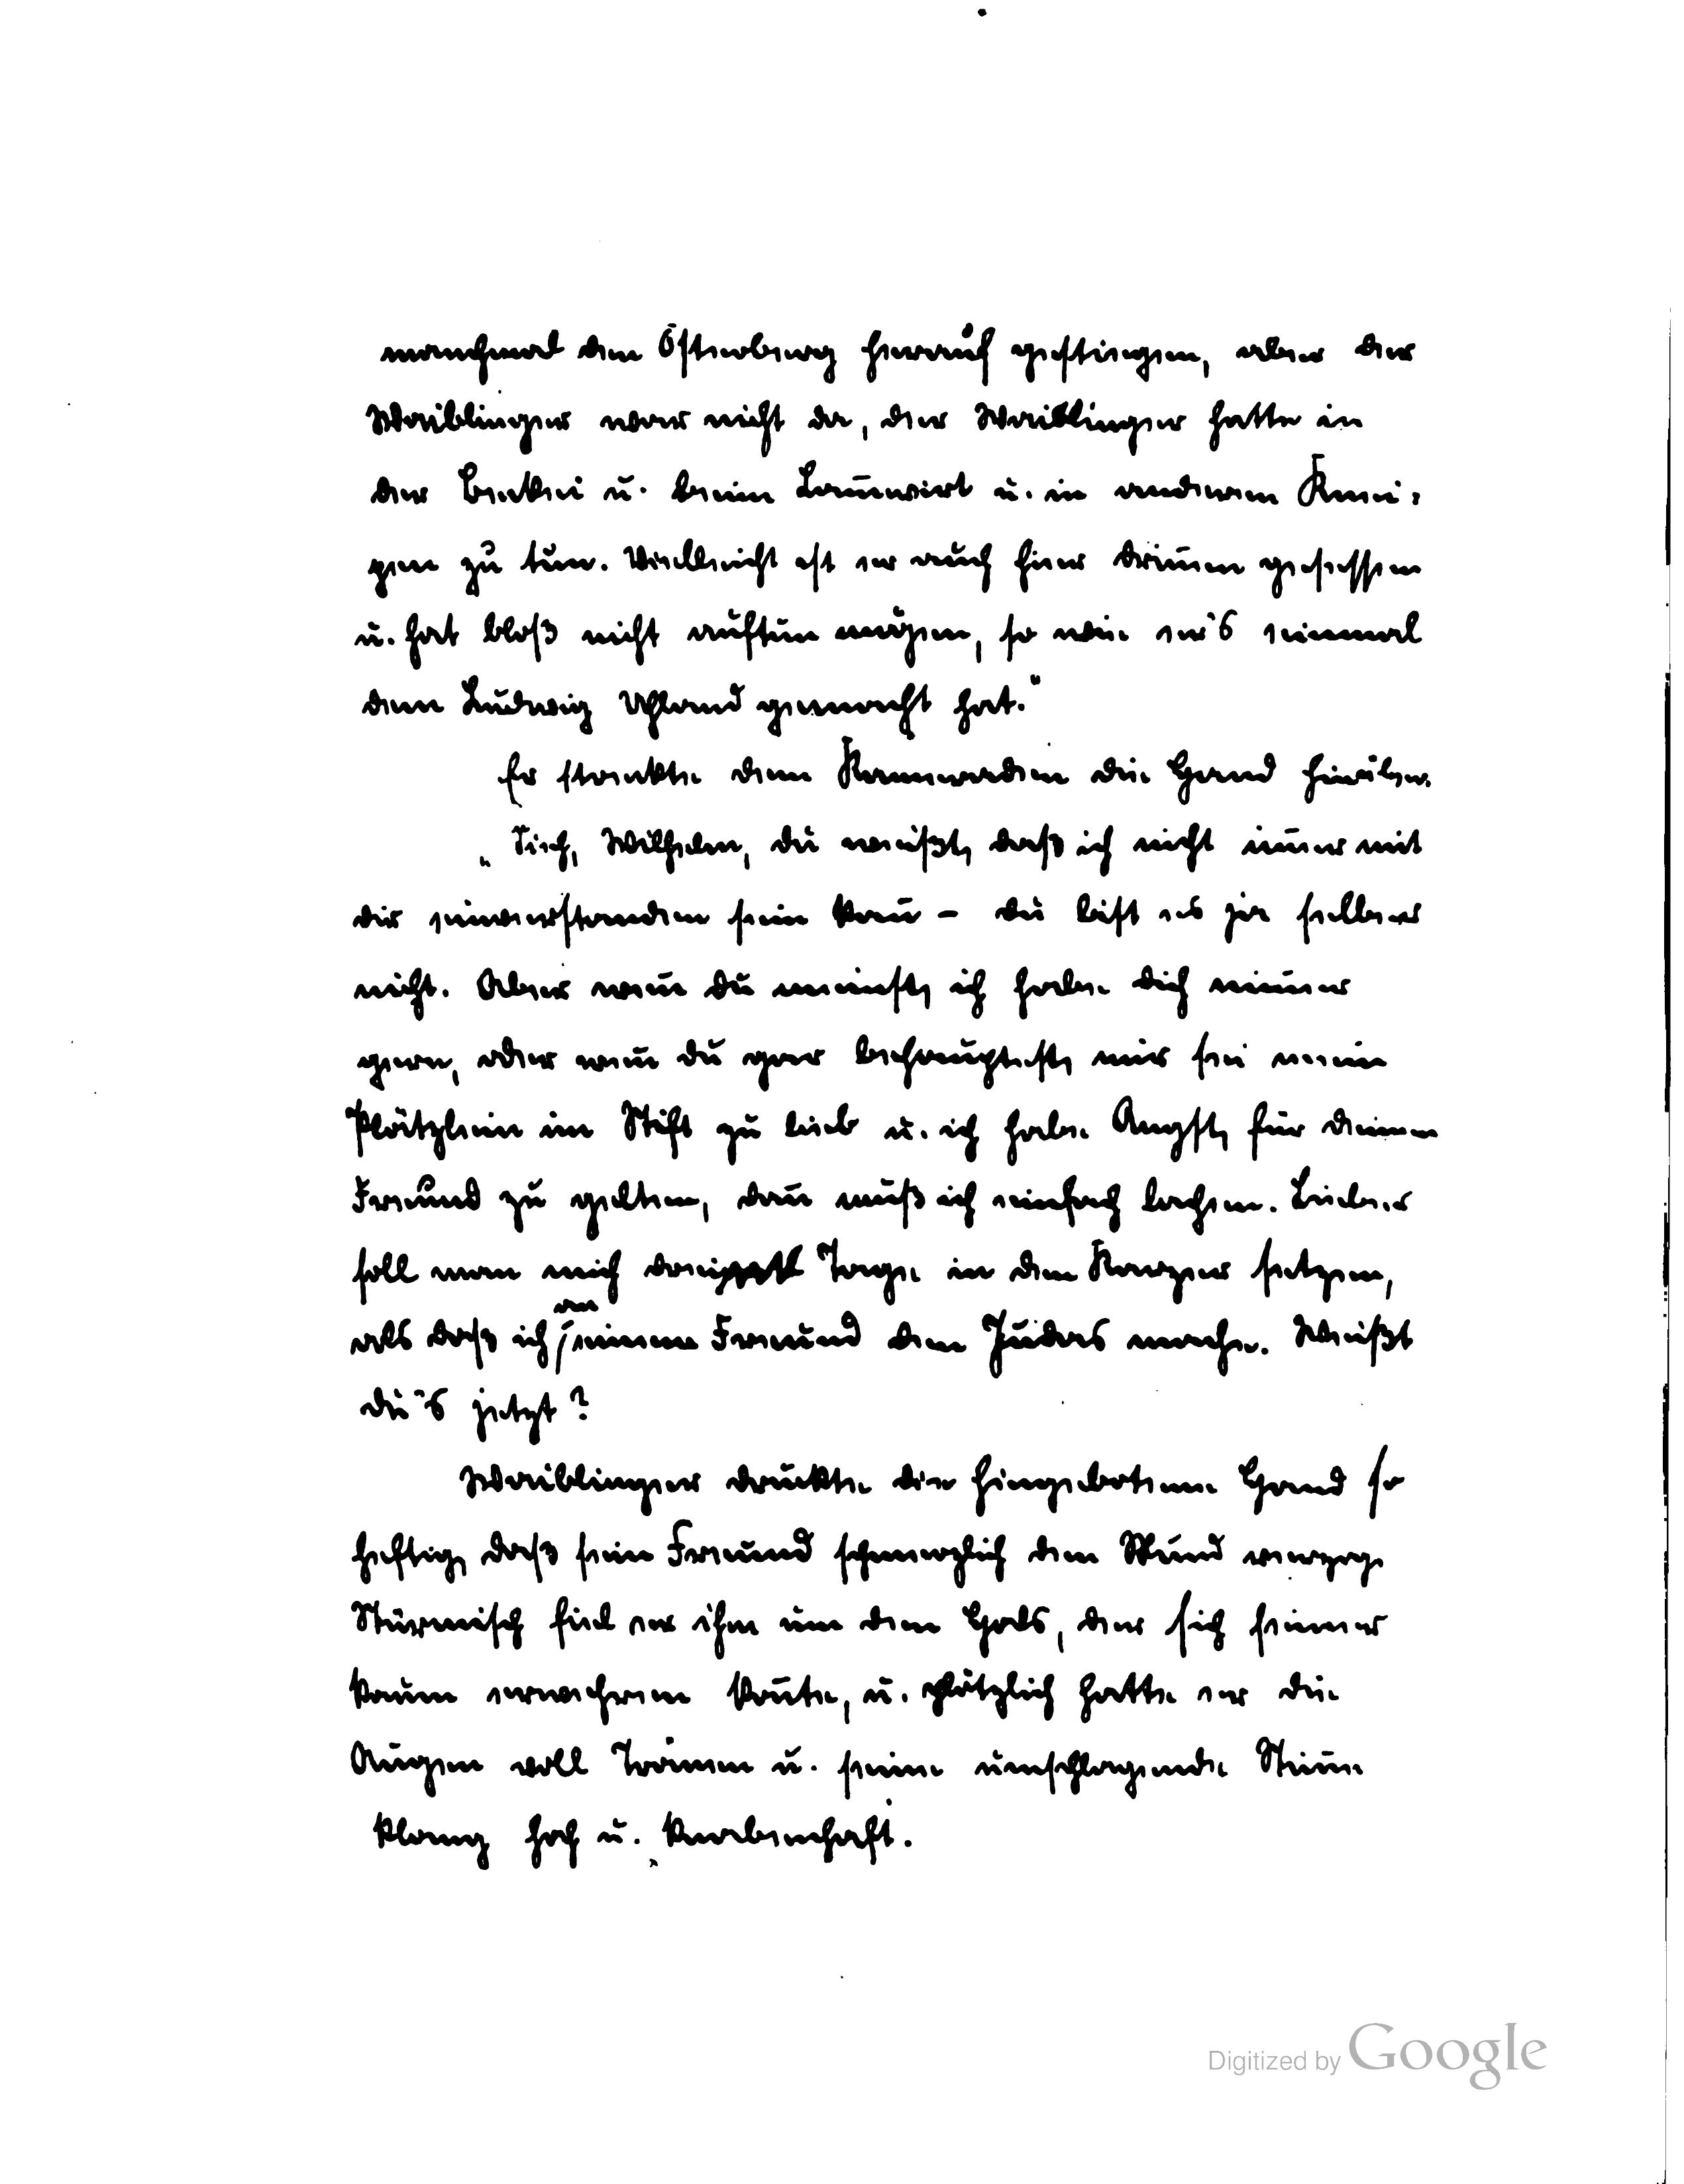 manchmal den Österberg herauf gestiegen, aber der
Waiblinger war nicht da, der Waiblinger hatte in
der Beckei u. beim Lam̅wirt u. in anderen Knei-
pen zu tun. Vielleicht ist er auch hier drin̅en gesessen
u. hat bloß nicht auftun mögen, so wie er's einmal
dem Ludwig Uhland gemacht hat."
Er streckte dem Kameraden die Hand hinüber.
„Sieh, Wilhelm, du weißt, daß ich nicht im̅er mit
dir einverstanden sein kan̅ – du bist es ja selber
nicht. Aber wen̅ du meinst, ich habe dich nim̅er
gern, oder wen̅ du gar behauptest, mir sei mein
Plätzlein im Stift zu lieb u. ich habe Angst, für deinen
Freund zu gelten, dan̅ muß ich einfach lachen. Lieber
soll man mich drei Tage in den Karzer setzen,
als daß ich an einem Freund den Judas mache. Weißt
du's jetzt?
Waiblinger drückte die hingebotene Hand so
heftig, daß sein Freund schmerzlich den Mund verzog.
Stürmisch fiel er ihm um den Hals, der sich seiner
kaum erwehren kon̅te, u. plötzlich hatte er die
Augen voll Tränen u. seine umschlagende Stim̅e
klang hoch u. knabenhaft.
Digitized by Google